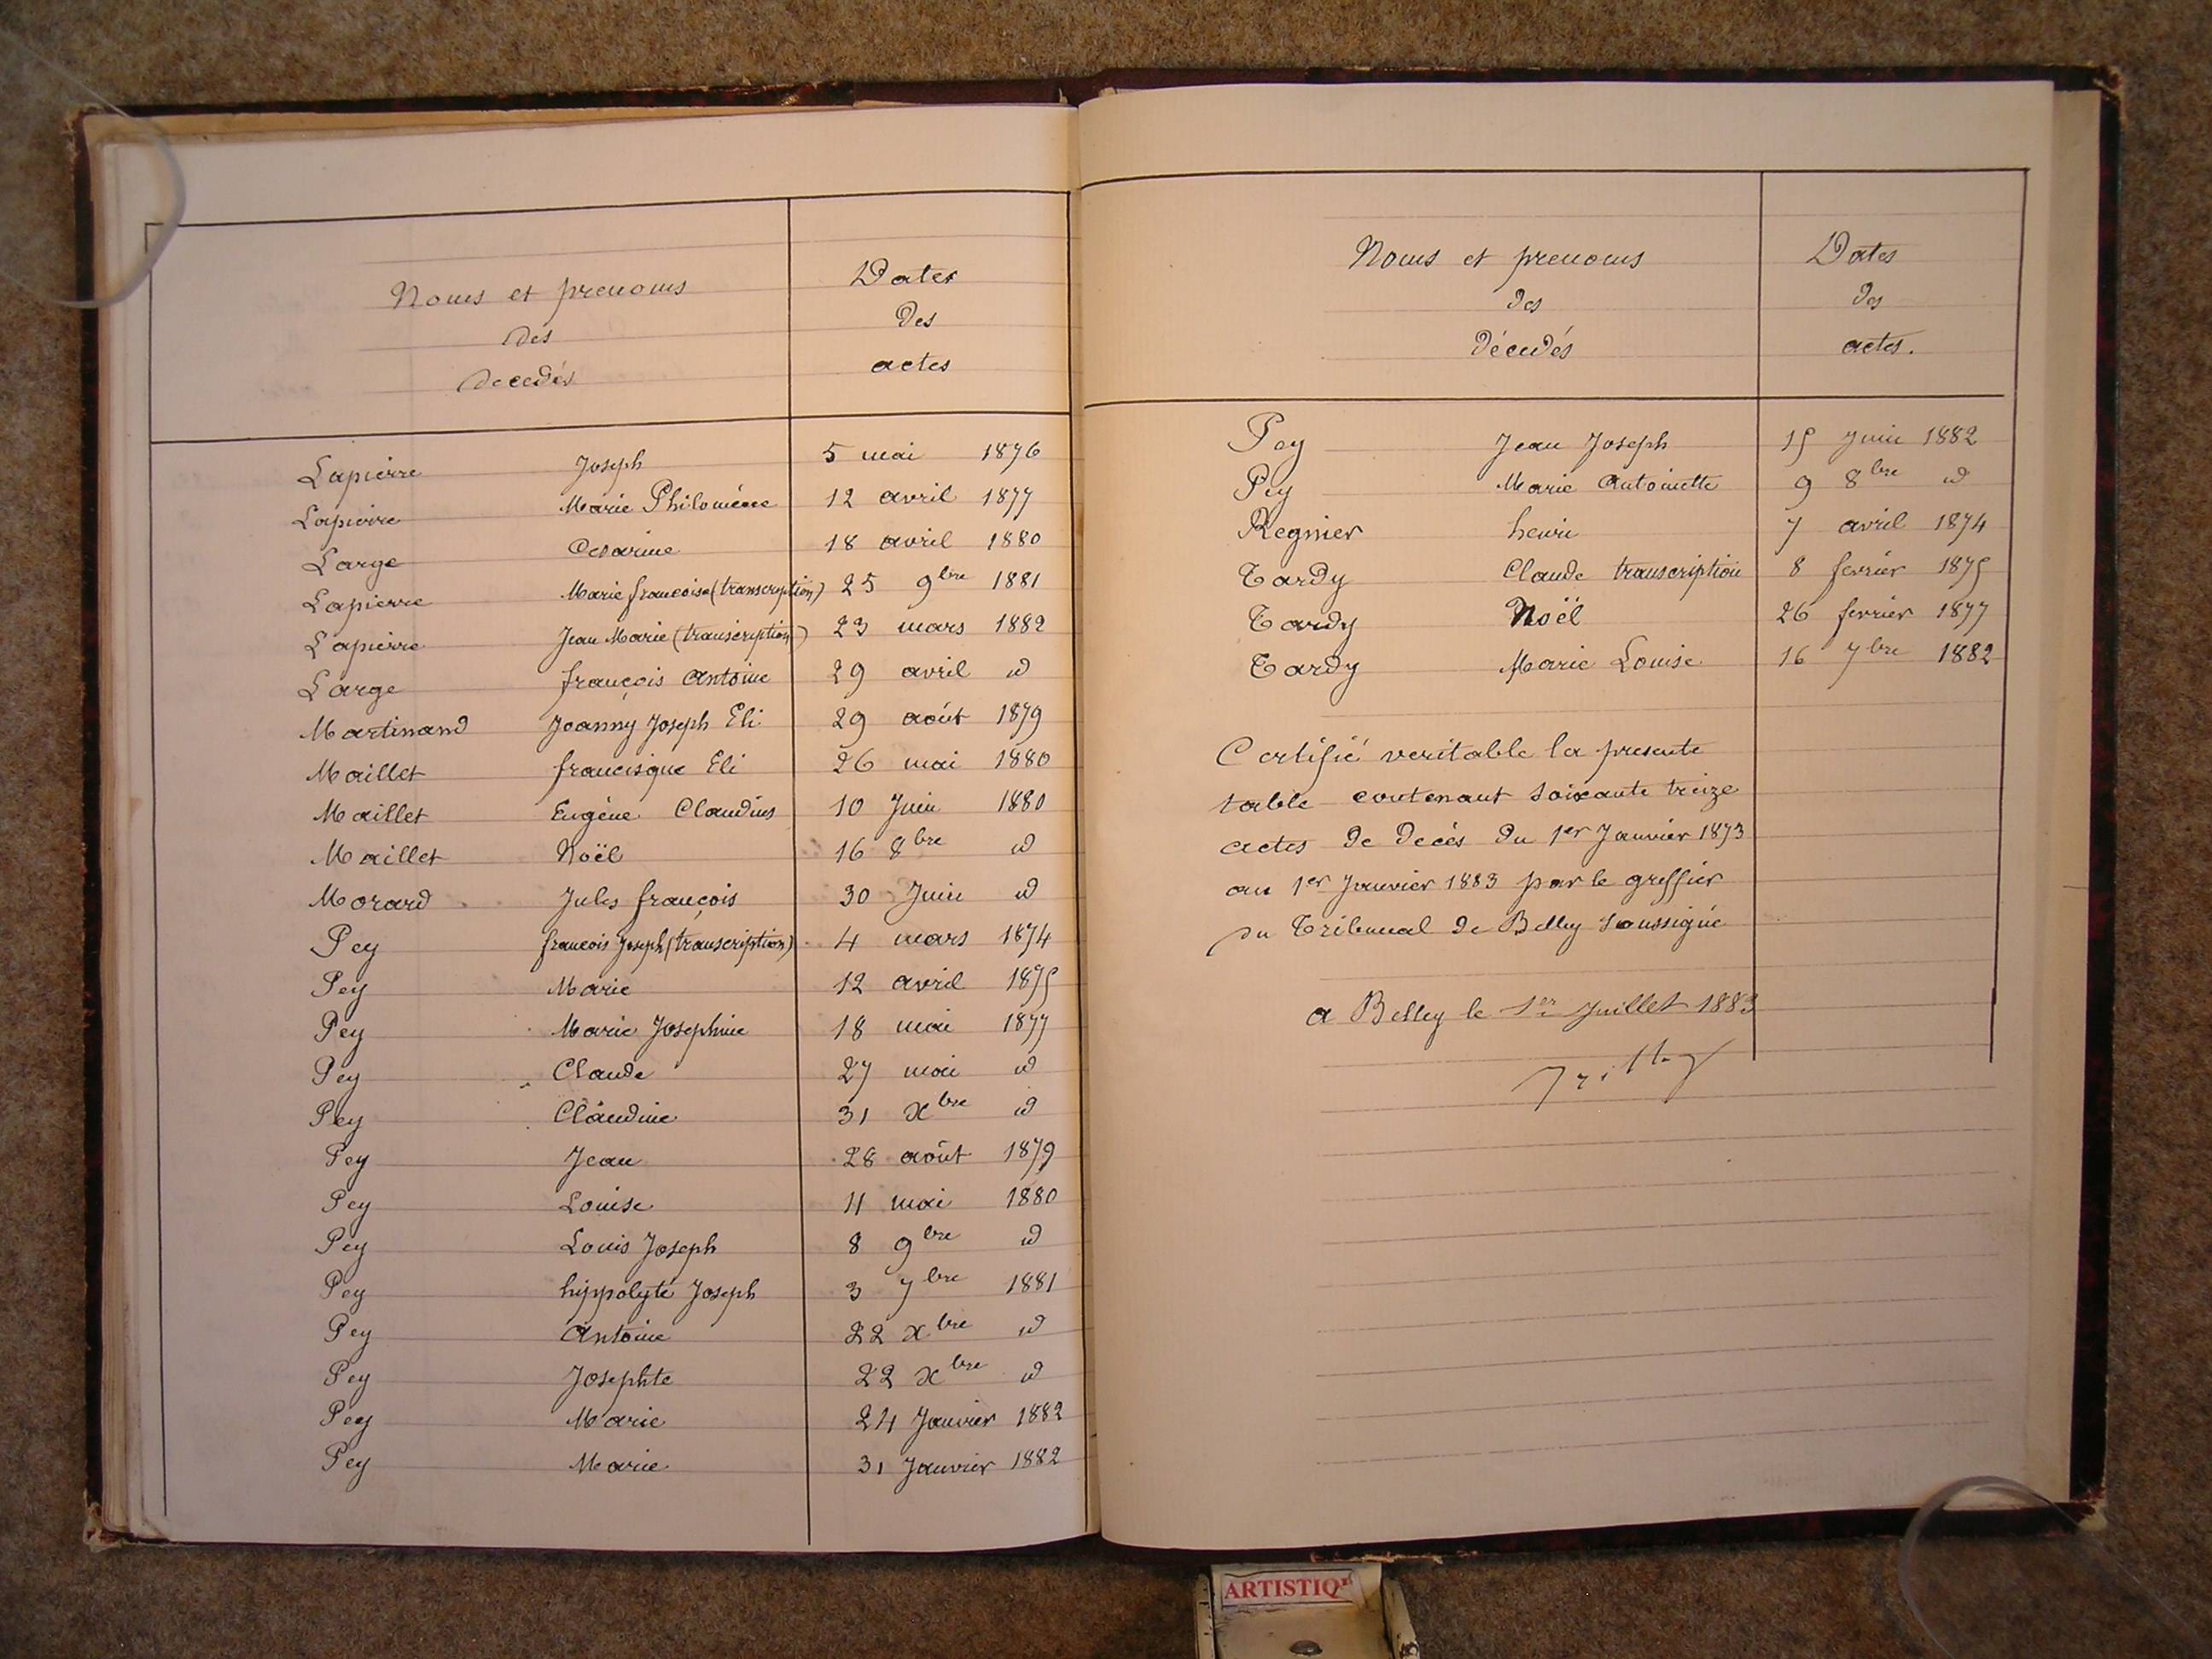 Noms et prenoms
des
decedés
Dates
des
actes
Lapierre Joseph 5 mai 1876
Lapierre Marie Philomène 12 avril 1877
Large Cesarine 18 avril 1880
Lapierre Marie françoise (transcription) 25 9bre 1881
Lapierre Jean Marie (transcription) 23 mars 1882
Large françois Antoine 29 avril id
Martinand Joanny Joseph Eli 29 août 1879
Maillet francisque Eli 26 mai 1880
Maillet Eugène Claudius 10 Juin 1880
Maillet Noël 16 8bre id
Morard Jules françois 30 Juin id
Pey francois Joseph (transcription) 4 mars 1874
Pey Marie 12 avril 1875
Pey Marie Josephine 18 mai 1877
Pey Claude 27 mai id
Pey Claudine 31 xbre id
Pey Jean 28 août 1879
Pey Louise 11 mai 1880
Pey Louis Joseph 8 9bre id
Pey hippolyte Joseph 3 7bre 1881
Pey Antoine 22 xbre id
Pey Josephte 22 xbre id
Pey Marie 24 Janvier 1882
Pey Marie 31 Janvier 1882
Noms et prenoms
des
décédés
Dates
des
actes.
Pey Jean Joseph 15 Juin 1882
Pey Marie Antoinette 9 8bre id
Regnier henri 7 avril 1874
Tardy Claude transcription 8 fevrier 1875
Tardy Noël 26 fevrier 1877
Tardy Marie Louise 16 7bre 1882
Certifié veritable la presente
table contenant soixante treize
actes de décès du 1er Janvier 1873
au 1er Janvier 1883 par le greffier
du Tribunal de Belley soussigné
a Belley le 1er Juillet 1883
ARTISTIQ